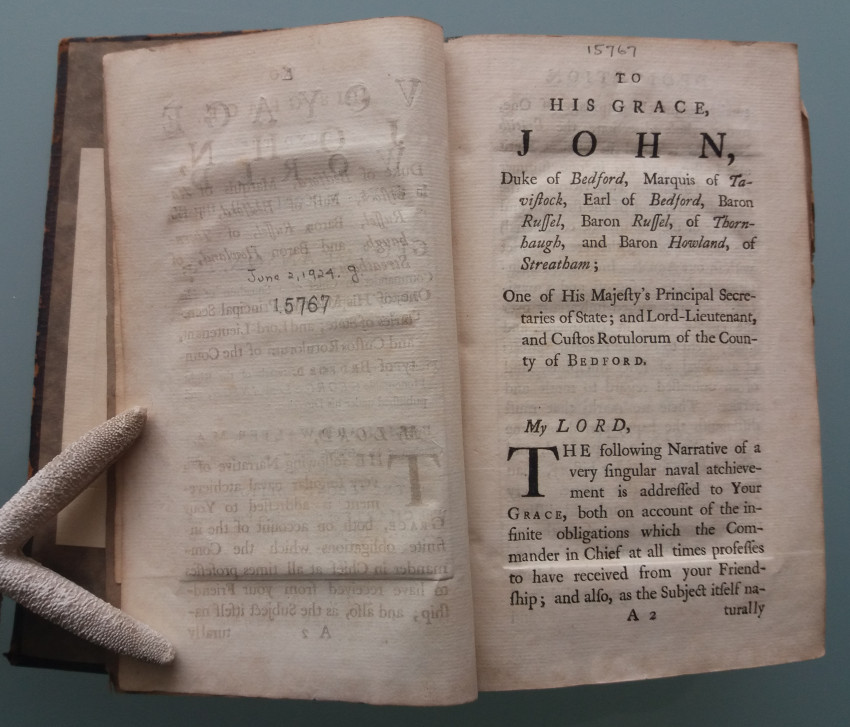 June 2, 1924. g
15767
15767
TO
HIS GRACE,
JOHN,
Duke of Bedford, Marquis of Ta-
viſtock, Earl of Bedford, Baron
Ruſſel, Baron Ruſſel, of Thorn-
haugh, and Baron Howland, of
Streatham;
One of His Majeſty's Principal Secre-
taries of State; and Lord-Lieutenant,
and Cuſtos Rotulorum of the Coun-
ty of BEDFORD.
My LORD,
THE following Narrative of a
very ſingular naval atchieve-
ment is addreſſed to Your
GRACE, both on account of the in-
finite obligations which the Com-
mander in Chief at all times profeſſes
to have received from your Friend-
ſhip; and alſo, as the Subject itſelf na-
A 2
turally